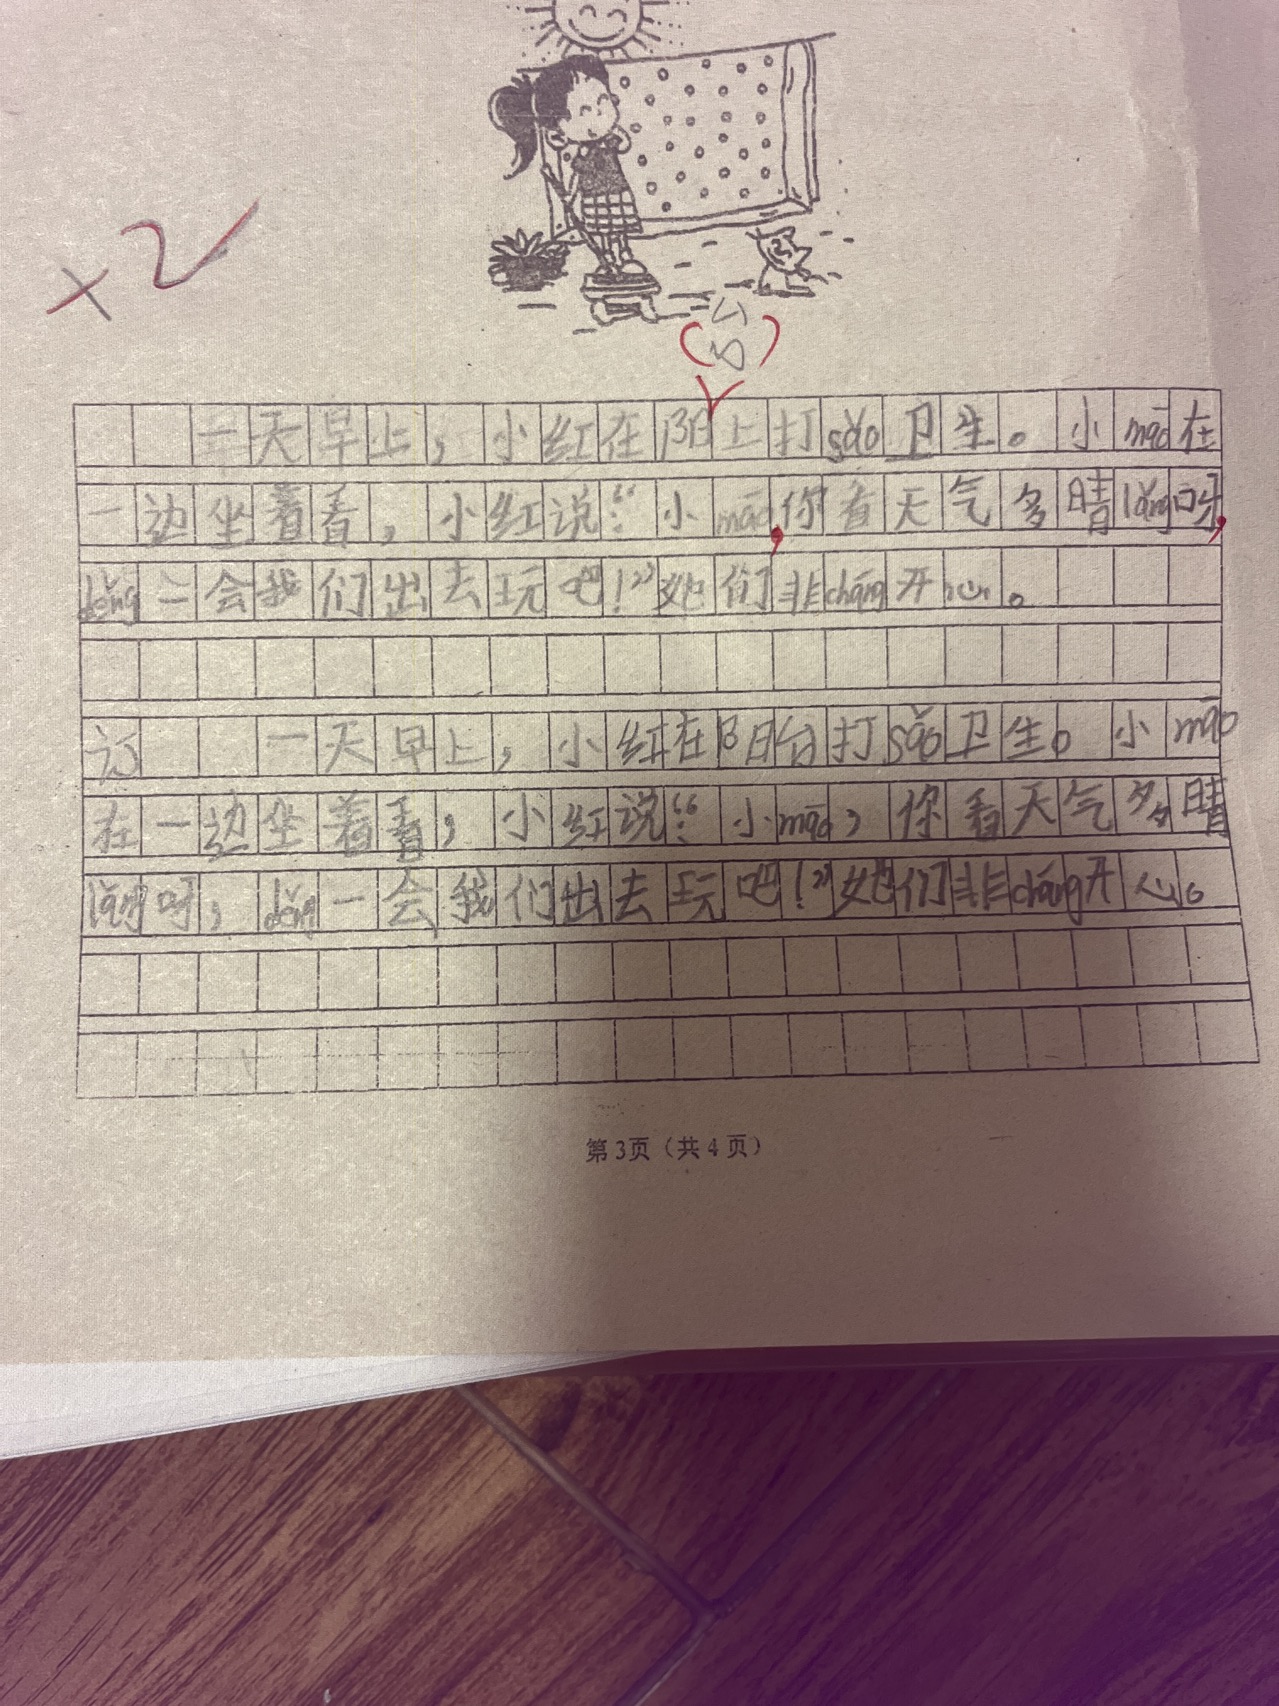 +2
台
一天早上，小红在阳上打sǎo卫生。小māo在
一边坐着看，小红说：“小māo，你看天气多晴lǎng呀，
děng一会我们出去玩吧！”她们非cháng开心。
订 一天早上，小红在阳台打sǎo卫生。小māo
在一边坐着看，小红说：“小māo，你看天气多晴
lǎng呀，děng一会我们出去玩吧！”她们非cháng开心。
第3页（共4页）